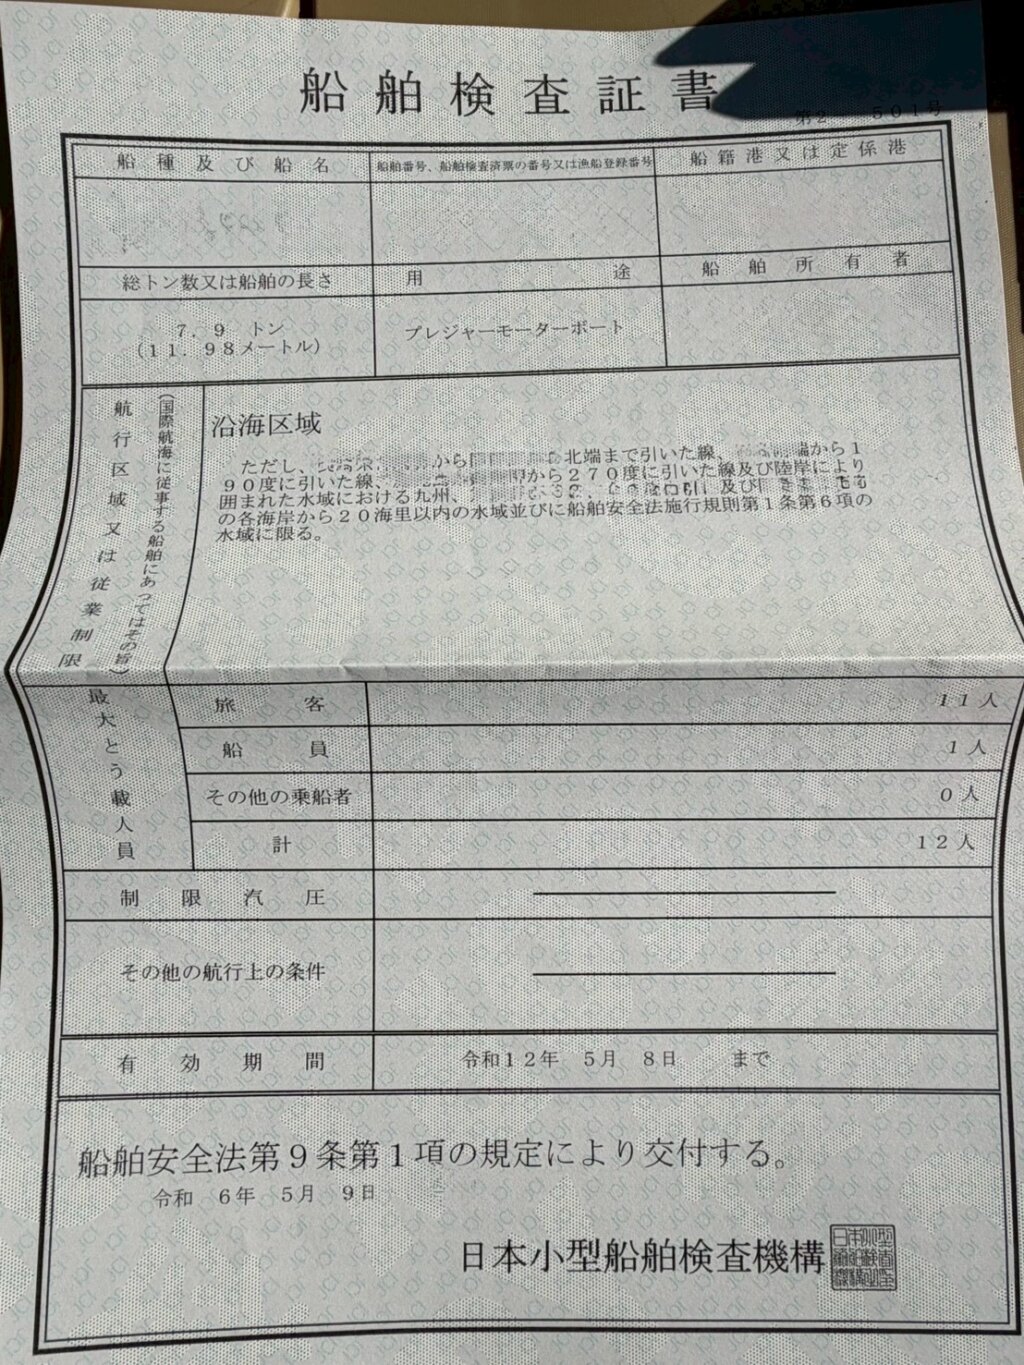 船舶検査証書
第2 501号
船種及び船名
船舶番号、船舶検査済票の番号又は漁船登録番号
船籍港又は定係港
総トン数又は船舶の長さ
用途
船舶所有者
7.9 トン
(11.98メートル)
プレジャーモーターボート
航行区域又は従業制限
(国際航海に従事する船舶にあってはその旨)
沿海区域
ただし、 から 北端まで引いた線、 端から1
90度に引いた線、 から270度に引いた線及び陸岸により
囲まれた水域における九州、 及び
の各海岸から20海里以内の水域並びに船舶安全法施行規則第1条第6項の
水域に限る。
最大とう載人員
旅客 11人
船員 1人
その他の乗船者 0人
計 12人
制限汽圧
その他の航行上の条件
有効期間 令和12年 5月 8日 まで
船舶安全法第9条第1項の規定により交付する。
令和 6年 5月 9日
日本小型船舶検査機構